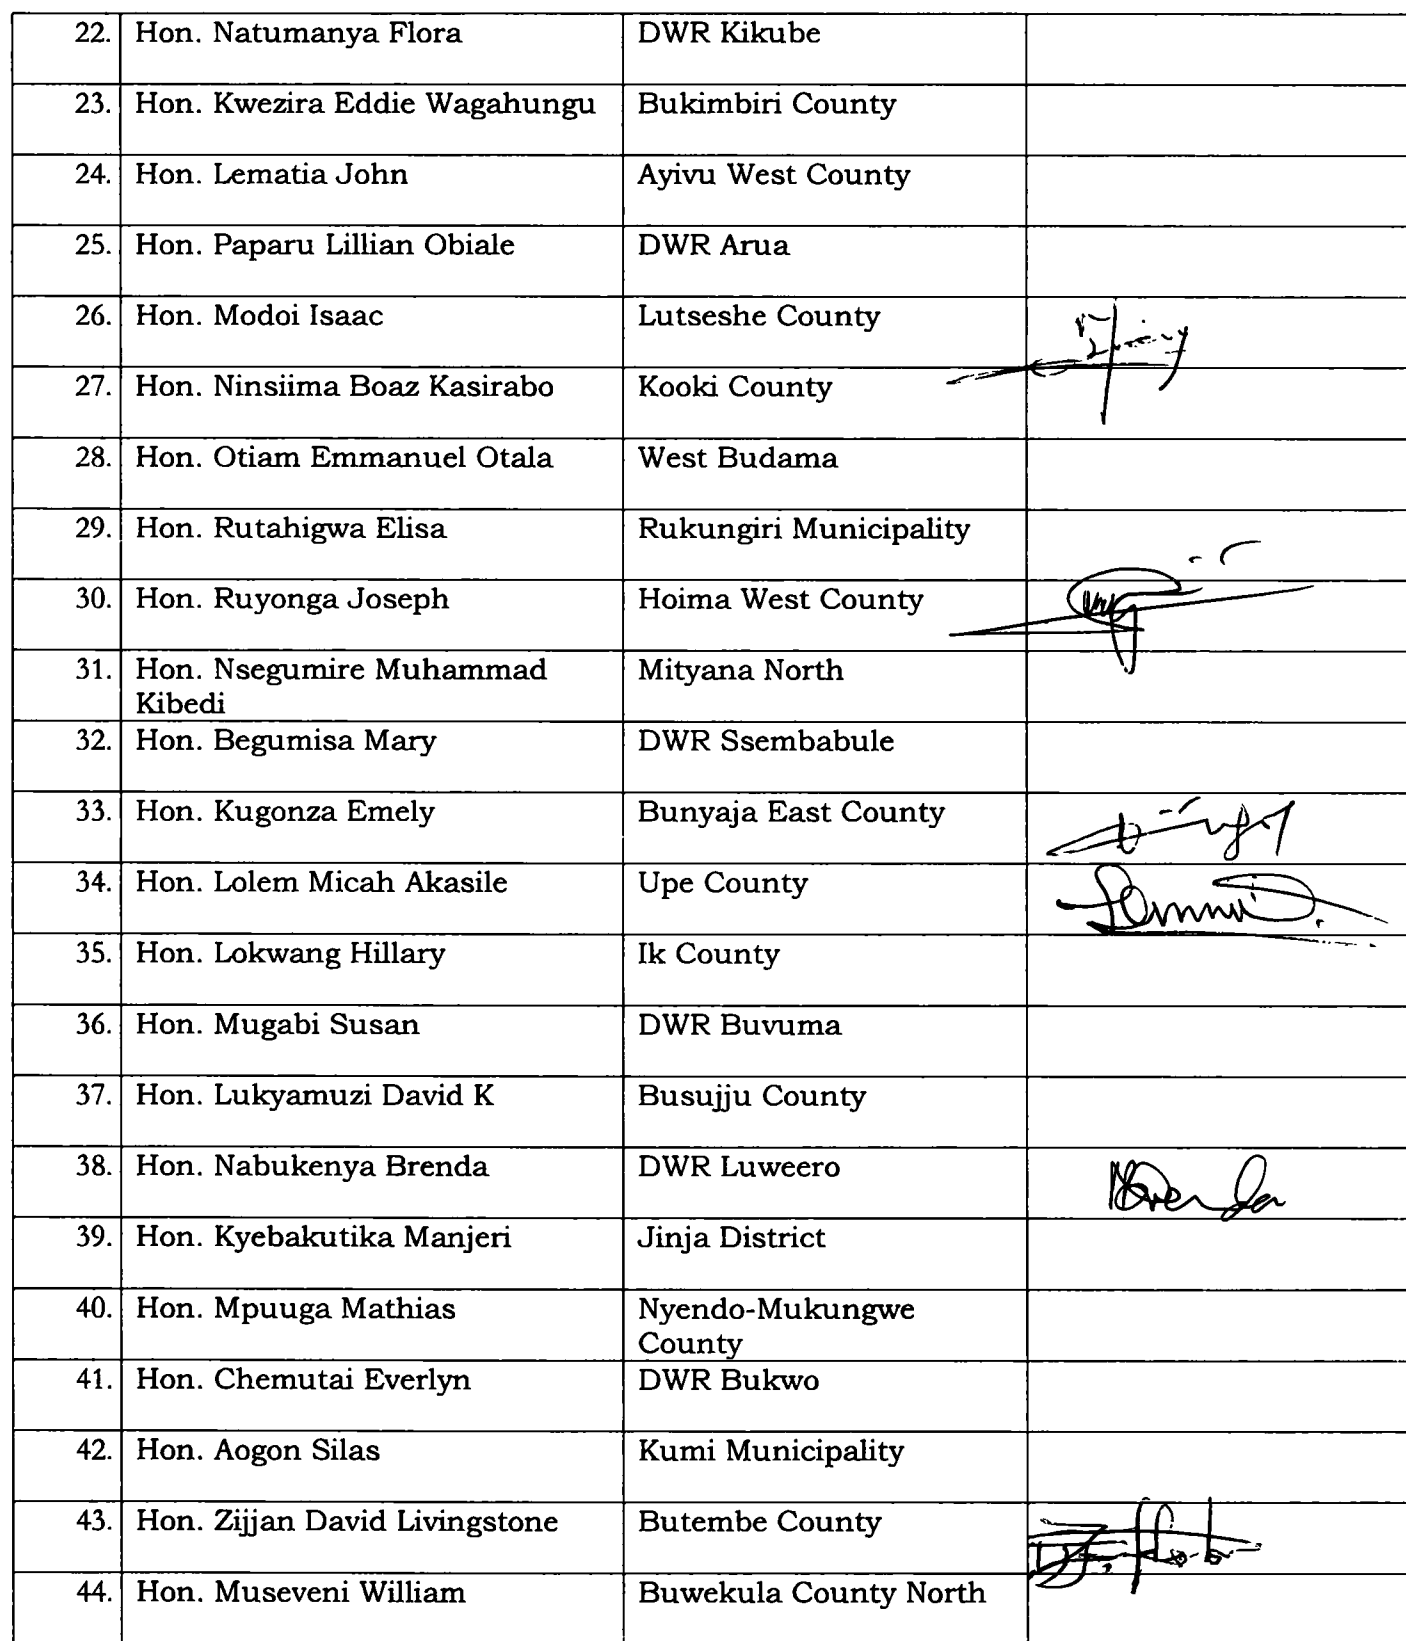 22. Hon. Natumanya Flora DWR Kikube
23. Hon. Kwezira Eddie Wagahungu Bukimbiri County
24. Hon. Lematia John Ayivu West County
25. Hon. Paparu Lillian Obiale DWR Arua
26. Hon. Modoi Isaac Lutseshe County
27. Hon. Ninsiima Boaz Kasirabo Kooki County
28. Hon. Otiam Emmanuel Otala West Budama
29. Hon. Rutahigwa Elisa Rukungiri Municipality
30. Hon. Ruyonga Joseph Hoima West County
31. Hon. Nsegumire Muhammad Mityana North
Kibedi
32. Hon. Begumisa Mary DWR Ssembabule
33. Hon. Kugonza Emely Bunyaja East County
34. Hon. Lolem Micah Akasile Upe County
35. Hon. Lokwang Hillary Ik County
36. Hon. Mugabi Susan DWR Buvuma
37. Hon. Lukyamuzi David K Busujju County
38. Hon. Nabukenya Brenda DWR Luweero
39. Hon. Kyebakutika Manjeri Jinja District
40. Hon. Mpuuga Mathias Nyendo-Mukungwe
County
41. Hon. Chemutai Everlyn DWR Bukwo
42. Hon. Aogon Silas Kumi Municipality
43. Hon. Zijjan David Livingstone Butembe County
44. Hon. Museveni William Buwekula County North